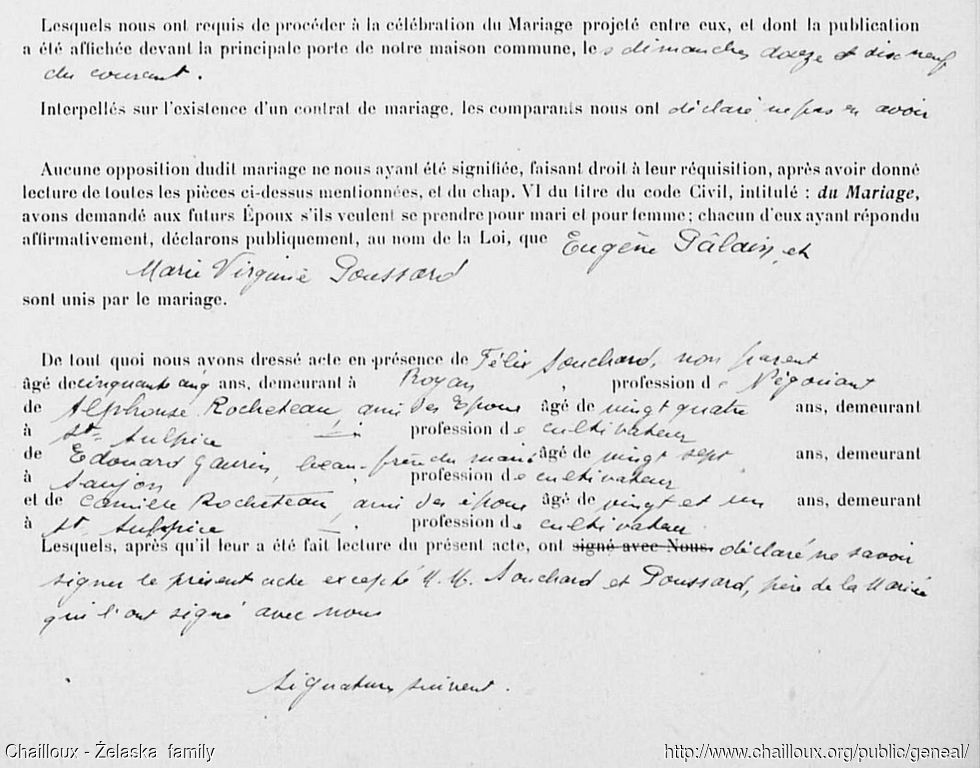 Lesquels nous ont requis de procéder à la célébration du Mariage projeté entre eux, et dont la publication
a été affichée devant la principale porte de notre maison commune, les dimanches douze et dix neuf
du courant.
Interpellés sur l'existence d'un contrat de mariage, les comparants nous ont déclaré ne pas en avoir
Aucune opposition dudit mariage ne nous ayant été signifiée, faisant droit à leur réquisition, après avoir donné
lecture de toutes les pièces ci-dessus mentionnées, et du chap. VI du titre du code Civil, intitulé : du Mariage,
avons demandé aux futurs Époux s'ils veulent se prendre pour mari et pour femme ; chacun d'eux ayant répondu
affirmativement, déclarons publiquement, au nom de la Loi, que Eugène Pâlain, et
Marie Virginie Poussard
sont unis par le mariage.
De tout quoi nous avons dressé acte en présence de Félix Souchard, non parent
âgé de cinquante cinq ans, demeurant à Royan, profession de Négociant
de Alphonse Rocheteau, ami des Epoux âgé de vingt quatre ans, demeurant
à St Sulpice profession de cultivateur
de Edouard Gaurin, beau-frère du marié âgé de vingt sept ans, demeurant
à Saujon, profession de cultivateur
et de Camille Rocheteau, ami des époux âgé de vingt et un ans, demeurant
à St Sulpice profession de cultivateur.
Lesquels, après qu'il leur a été fait lecture du présent acte, ont signé avec Nous. déclaré ne savoir
signer le présent acte excepté M.M. Souchard et Poussard, père de la Mariée
qui l'ont signé avec nous
Signatures suivent.
Chailloux - Želaska family
http://www.chailloux.org/public/geneal/